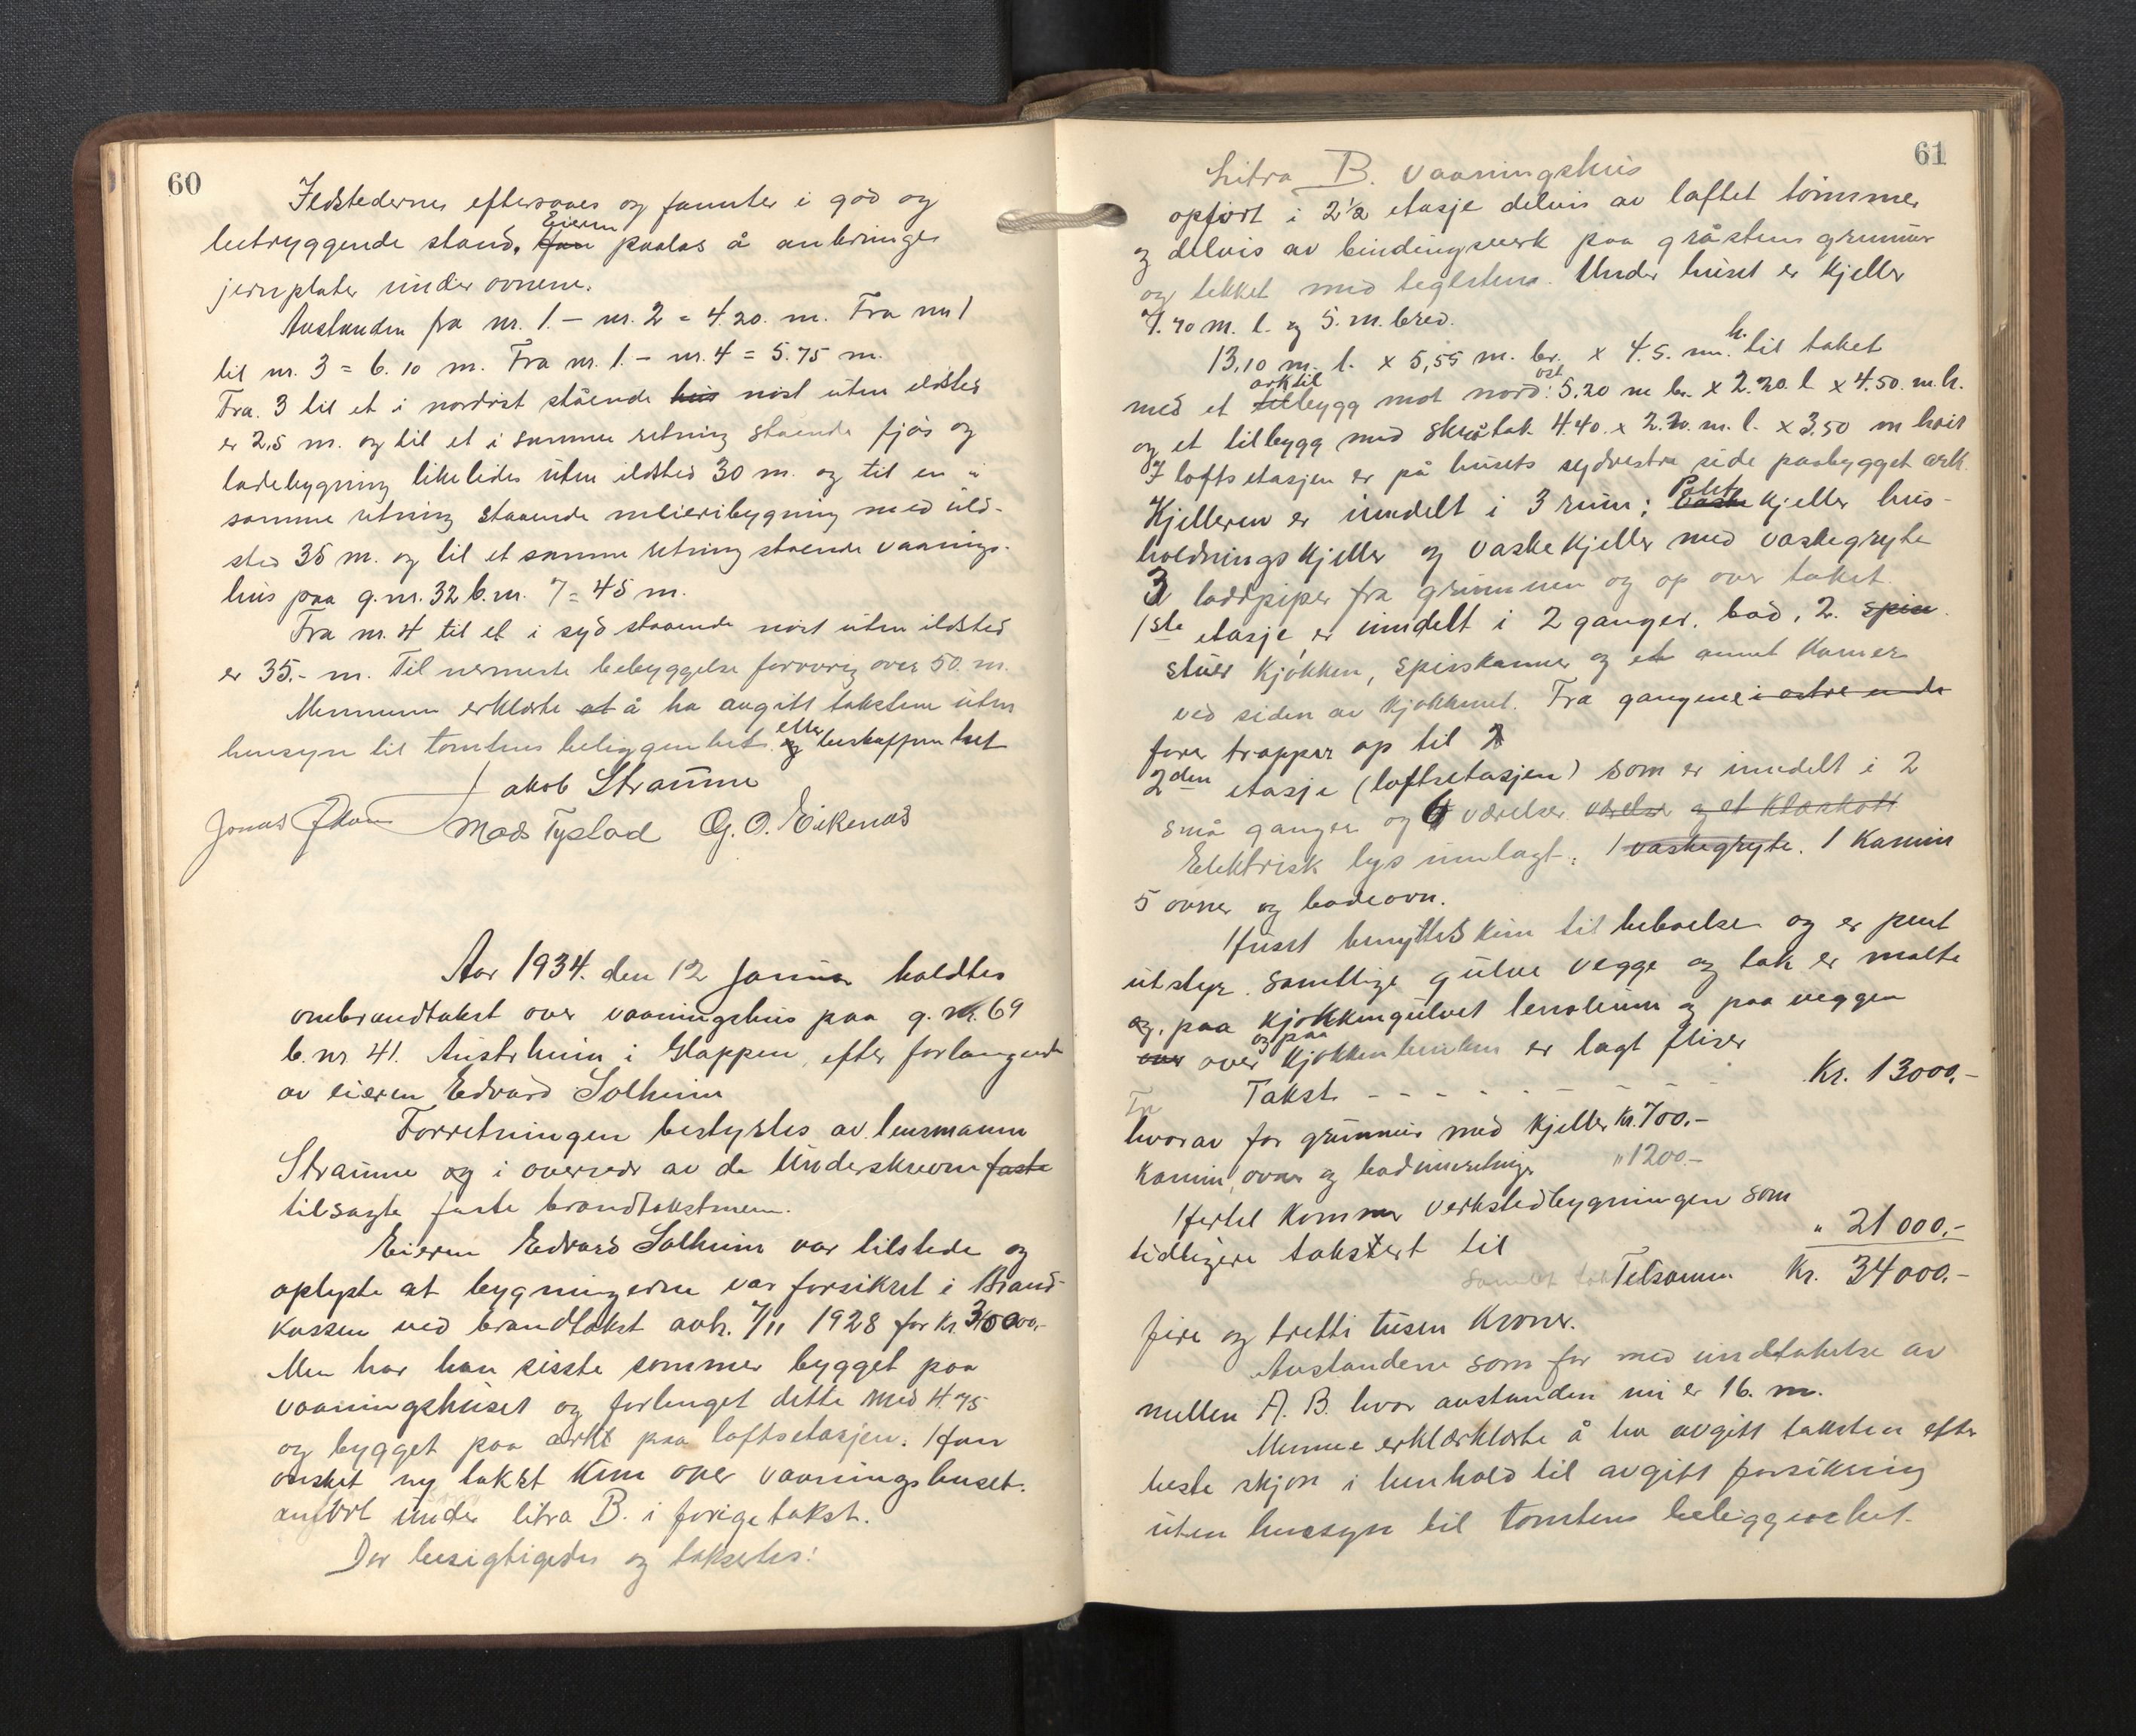 60
Ildstedernes eftersaaes og fanntes i god og
betryggende stand. Eieren paalas å anbringe
jernplater under ovnene.
Avstanden fra nr. 1. - nr. 2 = 4.20. m. Fra nr 1
til nr. 3 = 6.10 m. Fra nr. 1. - nr. 4 = 5.75 m.
Fra. 3 til et i nordvst stående hus nöst uten ildsted
er 2,5 m. og til et i samme retning stående fjös og
ladebygning likeledes uten ildsted 30 m. og til en i
samme retning staaende meieribygning med ild-
sted 35 m. og til et samme retning stående vaanings-
hus paa g.nr. 32 b.nr. 7 = 45 m.
Fra nr. 4 til et i syd staaende nöst uten ildsted
er 35.- m. Til nermeste bebyggelse forövrig over 50. m.
Mennene erklærte at å ha avgitt takstene uten
hensyn til tomtens beliggenhet og eller beskaffenhet
Jakob Straume
Jonas Mads Tystad G. O. Eikenæs
Aar 1934. den 12 Januar holdtes
ombrandtakst over vaaningshus paa g. nr. 69
b. nr 41. Austrheim i Glappen, efter forlangende
av eieren Edvard Solheim
Forretningen bestyrtes av lensmann
Straume og i overvær av de underskrevne faste
tilsagte faste brandtakstmenn.
Eieren Edvard Solheim var tilstede og
oplyste at bygningerne var forsikret i Brand-
kassen ved brandtakst avh. 7/11 1928 for Kr. 31000,-
Men har han sisste sommer bygget paa
vaaningshuset og forlenget dette med 4.75
og bygget paa ark paa loftsetasjen. Han
önsket ny takst kun over vaaningshuset.
anfört under litra B. i forige takst.
Der besigtigedes og takseredes:
61
Litra B. Vaaningshus
opfört i 2½ etasje delvis av laftet tömmer
og delvis av bindingsverk paa gråstens grunnur
og tekket med teglsten. Under huset er kjeller
7.70 m. l. og 5. m. bred.
13,10 m. l. x 5,55 m. br. x 4.5. m. h. til taket
med et arktilbygg mot nordöst: 5.20 m br. x 2.20. l x 4.50. m. h.
og et tilbygg med skråtak 4.40. x 2.20. m. l. x 3.50 m höit
I loftsetasjen er på husets sydvestre side paabygget ark.
Kjelleren er inndelt i 3 rum; Potet vaske kjeller hus-
holdningskjeller og vaskekjeller med vaskegryte
3 loddpiper fra grunnen og op over taket.
1ste etasje er inndelt i 2 ganger. bad, 2. spise
stuer kjökken, spisskammer og et annet kamer
ved siden av kjökkenet. Fra gangene i östre ende
förer trapper op til
2den etasje (loftsetasjen) som er inndelt i 2
små ganger og 6 værelser værelser og et kleskott
Elektrisk lys innlagt: 1 vaskegryte. 1 kamin
5 ovner og badeovn.
Huset benyttes kun til beboelse og er pent
utstyr. Samtlige gulve vegge og tak er malte
og, paa kjökkengulvet lenoleum og paa veggen
over og paa kjökkenbenken er lagt fliser
Takst - - - - - - - - Kr. 13000,-
hvorav for grunnur med kjeller Kr. 700.-
Kamin, ovner og badinnretning " 1200.-
Hertil kommer verkstedbygningen som
tidligere takstert til " 21000,-
Tilsammen Kr. 34000,-
fire og tretti tusen Kroner.
Avstandene som för med undtakelse av
mellem A. B. hvor avstanden nu er 16. m.
Mennene erklærklærte å ha avgitt taksten efter
beste skjön i henhold til avgitt forsikring
uten hensyn til tomtens beliggenhet.